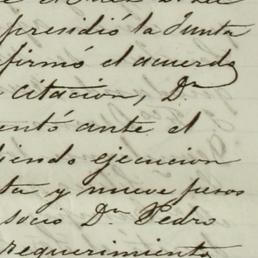 presidió la Junta
firmó el acuerdo
citacion, Dn
entó ante el
iendo ejecucion
ta y nueve pesos
socio Dn Pedro
requerimiento